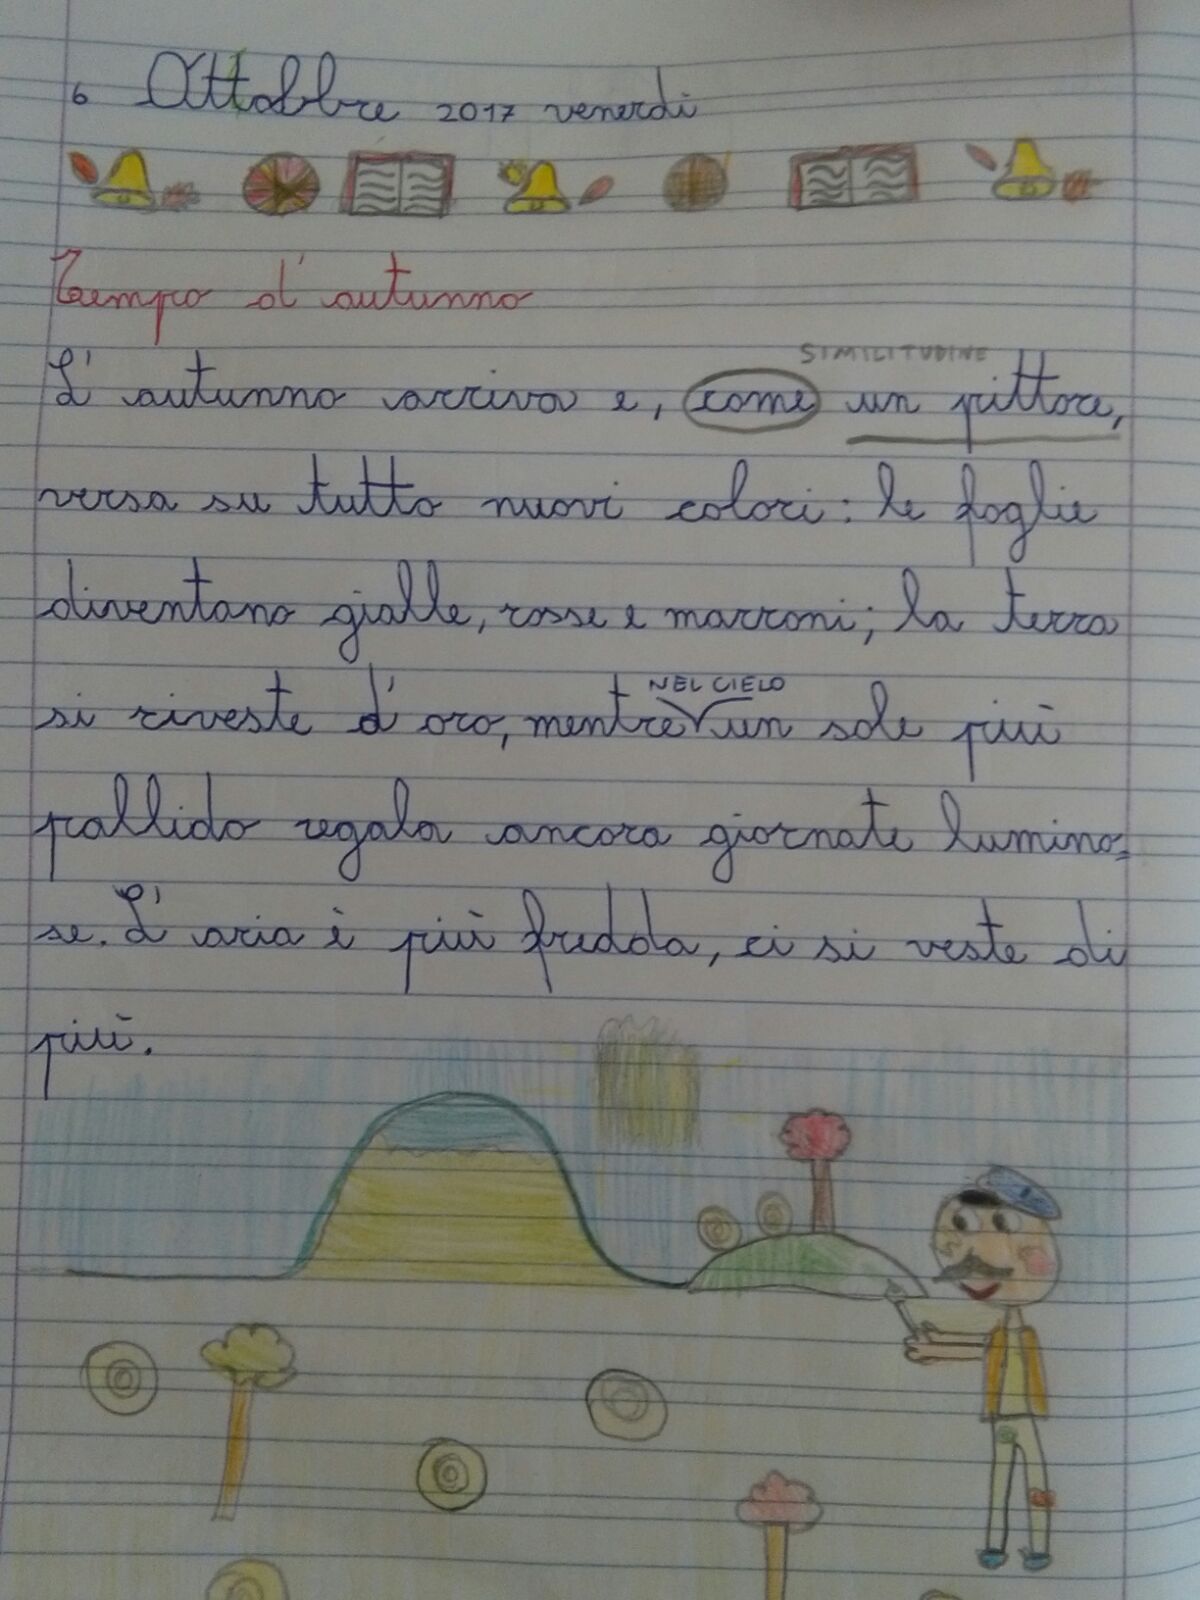 6 Ottobbre 2017 venerdì
Tempo d'autunno
SIMILITUDINE
L'autunno arriva e, come un pittore,
versa su tutto nuovi colori: le foglie
diventano gialle, rosse e marroni; la terra
NEL CIELO
si riveste d'oro, mentre un sole più
pallido regala ancora giornate lumino=
se. L'aria è più fredda, ci si veste di
più.